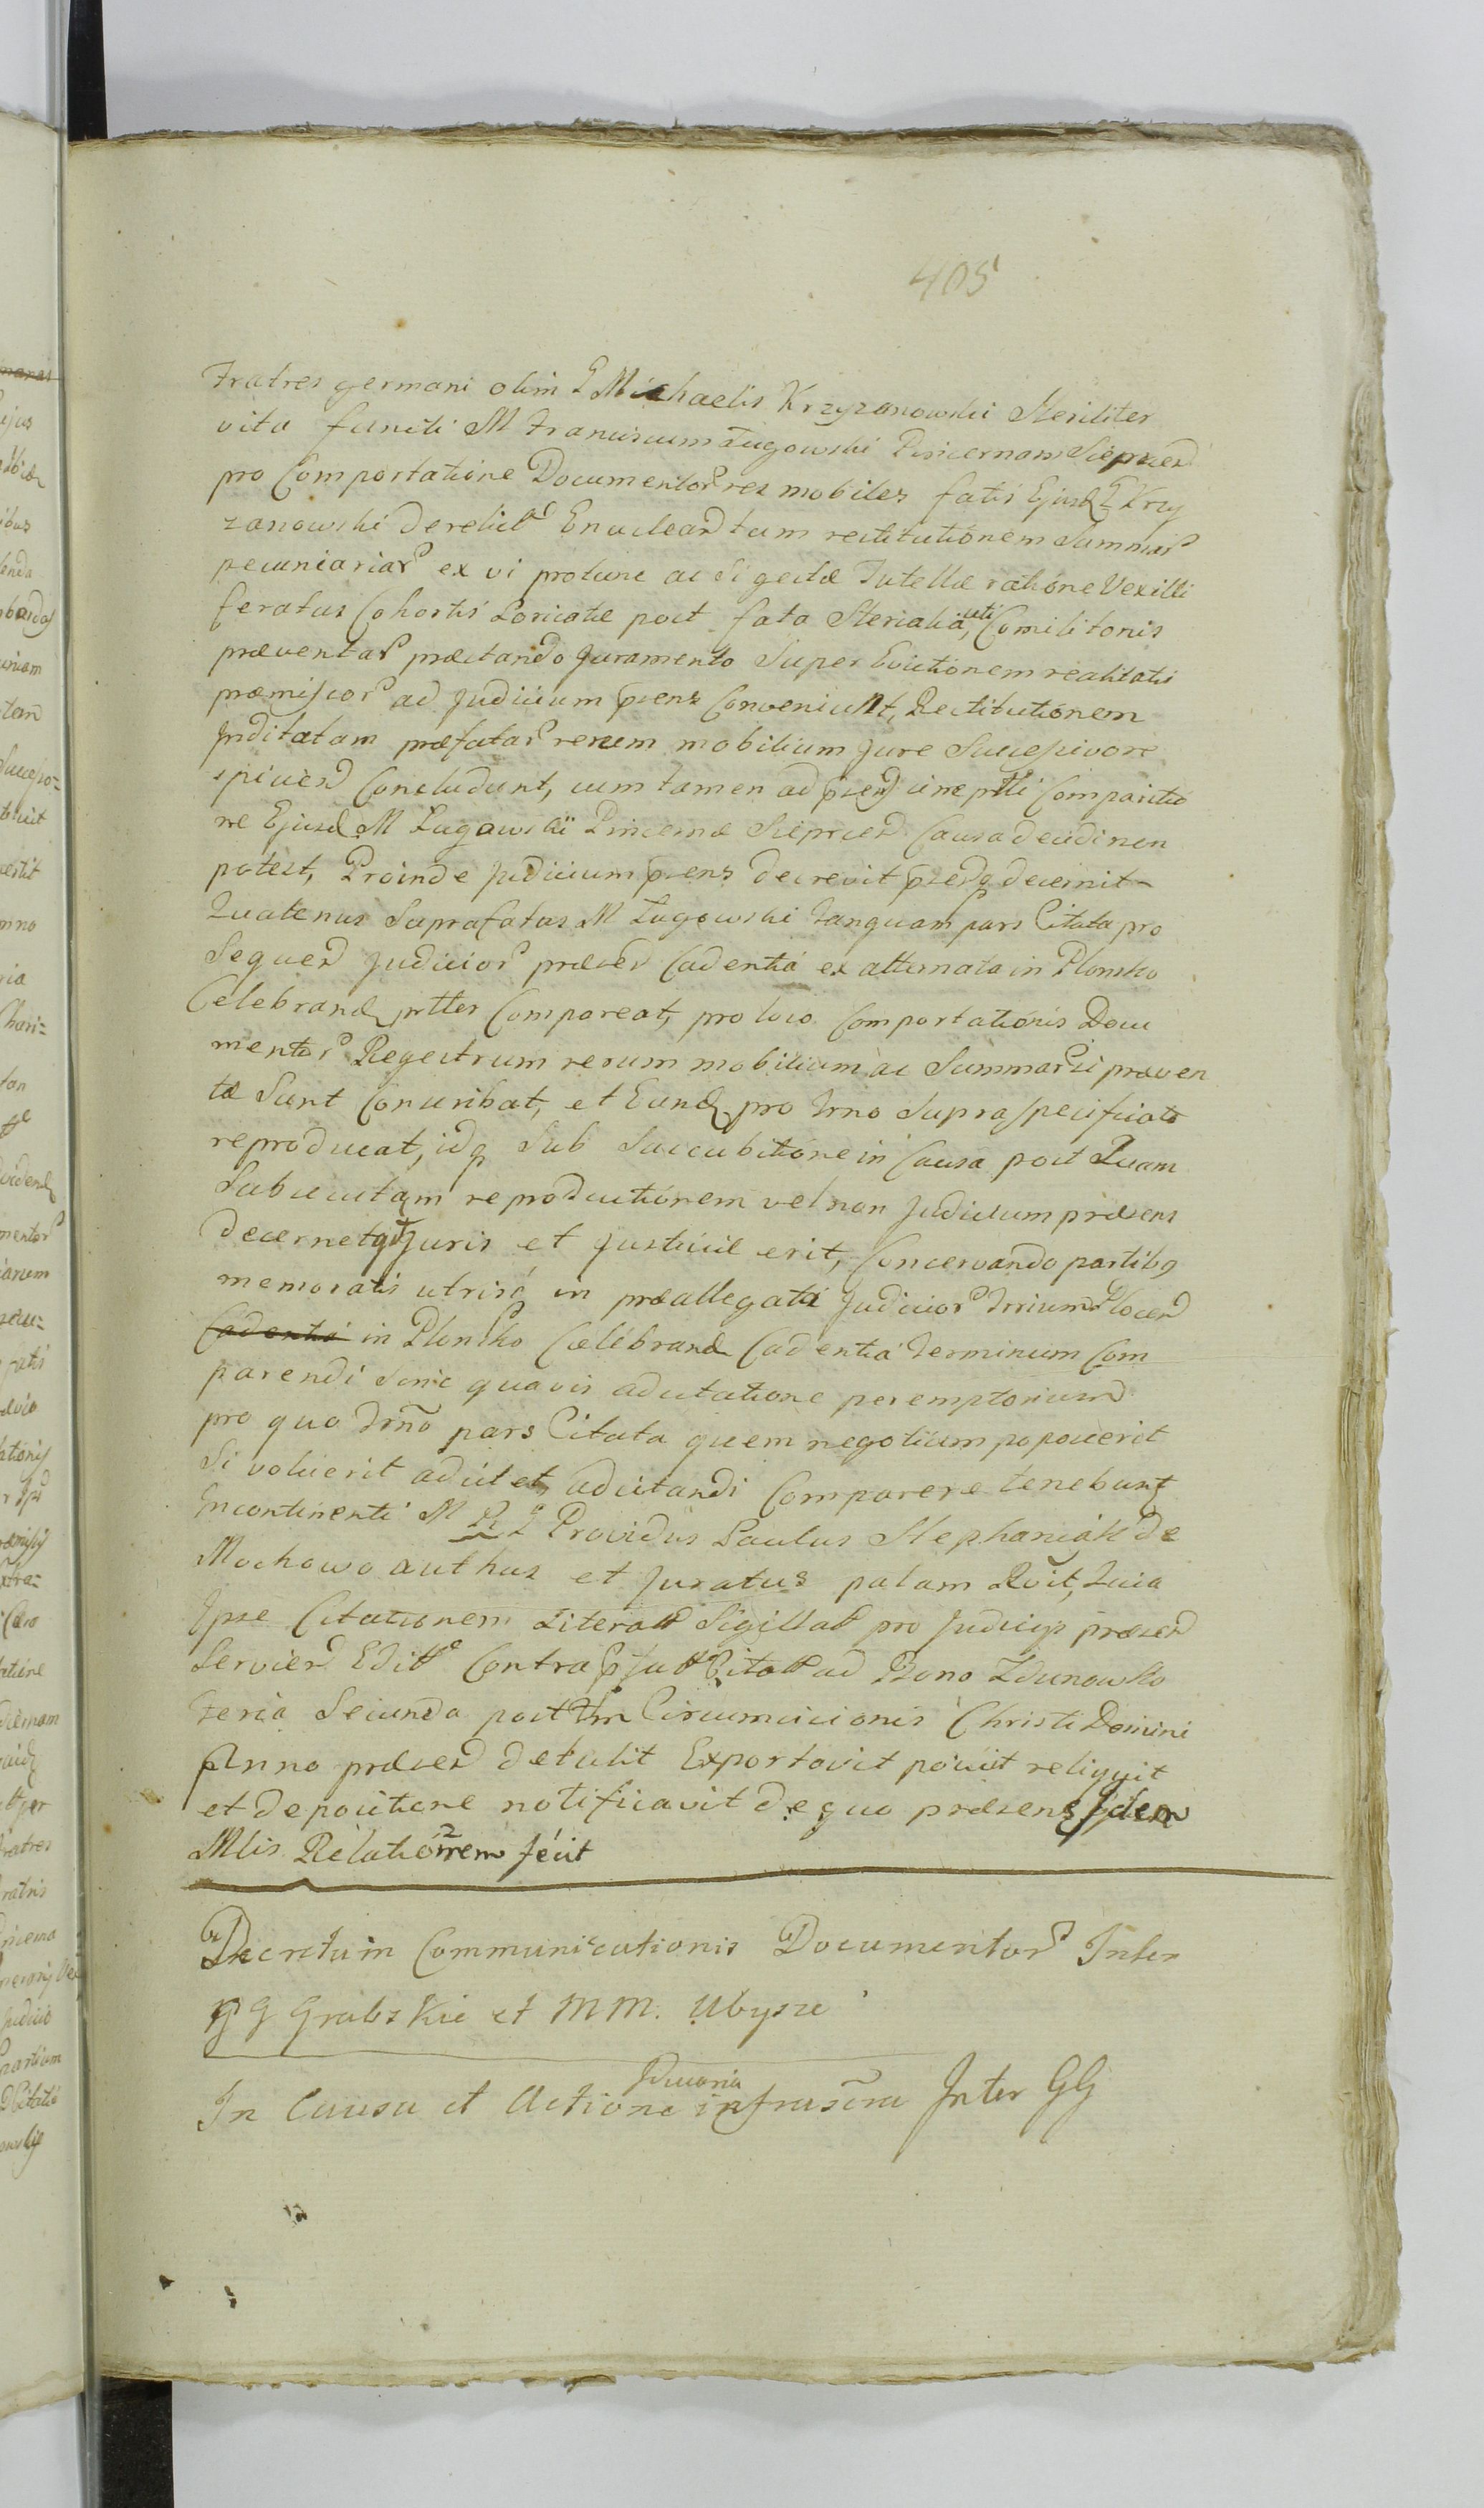 405
Fratres germani olim G Michaelis Krzyzanowski Steriliter
vita functi M Franciscum Lugowski Pincernam Sieprcen
pro Comportatione Documentor res mobiles fatis Ejusd G Krzy
zanowski derelict Enuclean tum restitutionem Summar
pecuniariar ex vi protunc ac si gestæ Tutellæ ratione Vexilli
feratus Cohortis Loricatæ post fata Sterialia, uti Comilitonis
præventar præstando Juramento Super Evictionem realitatis
præmissor ad Judicium præns Conveniunt, Restitutionem
Inditatam præfatar rerum mobilium Jure Successivo re
spicien Concludunt, cum tamen ad præn sine prlli Comparitio
ne Ejusd M Lugowskii Pincernæ Sieprcen Causa decidi non
potest, Proinde Judicium præns decrevit prænq decernit
Quatenus Suprafatus M Lugowski tanquam pars Citata pro
Sequen Judicior præsen Cadentia ex alternata in Plonsko
Celebrand prller Compareat, pro loco Comportationis Docu
mentor Regestrum rerum mobilium ac Summar si præven
tæ Sunt Conscribat, et Eund pro Trno Supra specificato
reproducat, idq Sub Succubitione in Causa post Quam
Subsecutam reproductionem vel non Judicium præsens
decernet qt Juris et Justitiæ erit, Conservando partibq
memoratis utrisq in præallegata Judicior Trrium Plocen
Cadentia in Plonsko Celebrand Cadentia Terminum Com
parendi Sine quavis adcitatione peremptorium
pro quo Trno pars Citata quem negotium poposcerit
Si voluerit adcitet, adcitandi Comparere tenebunt
Incontinenti M Rl I Providus Paulus Stephaniak de
Mochowo authus et Juratus palam Rcoit, Quia
Ipse Citationem Literal Sigillat pro Judicijs præsen
Servien Edit Contra Citat ad Bona Zdunowsko
Feria Secunda post Circumcicionis Christi Domini
Anno præsen detulit Exportavit posuit reliquit
et depositione notificavit de quo præsens Idem
Mlis Relationem fecit
Decretum Communicationis Documentor Inter
GG Grabskie et MM. Ubysze
In Causa et Actione infrascra Inter GG